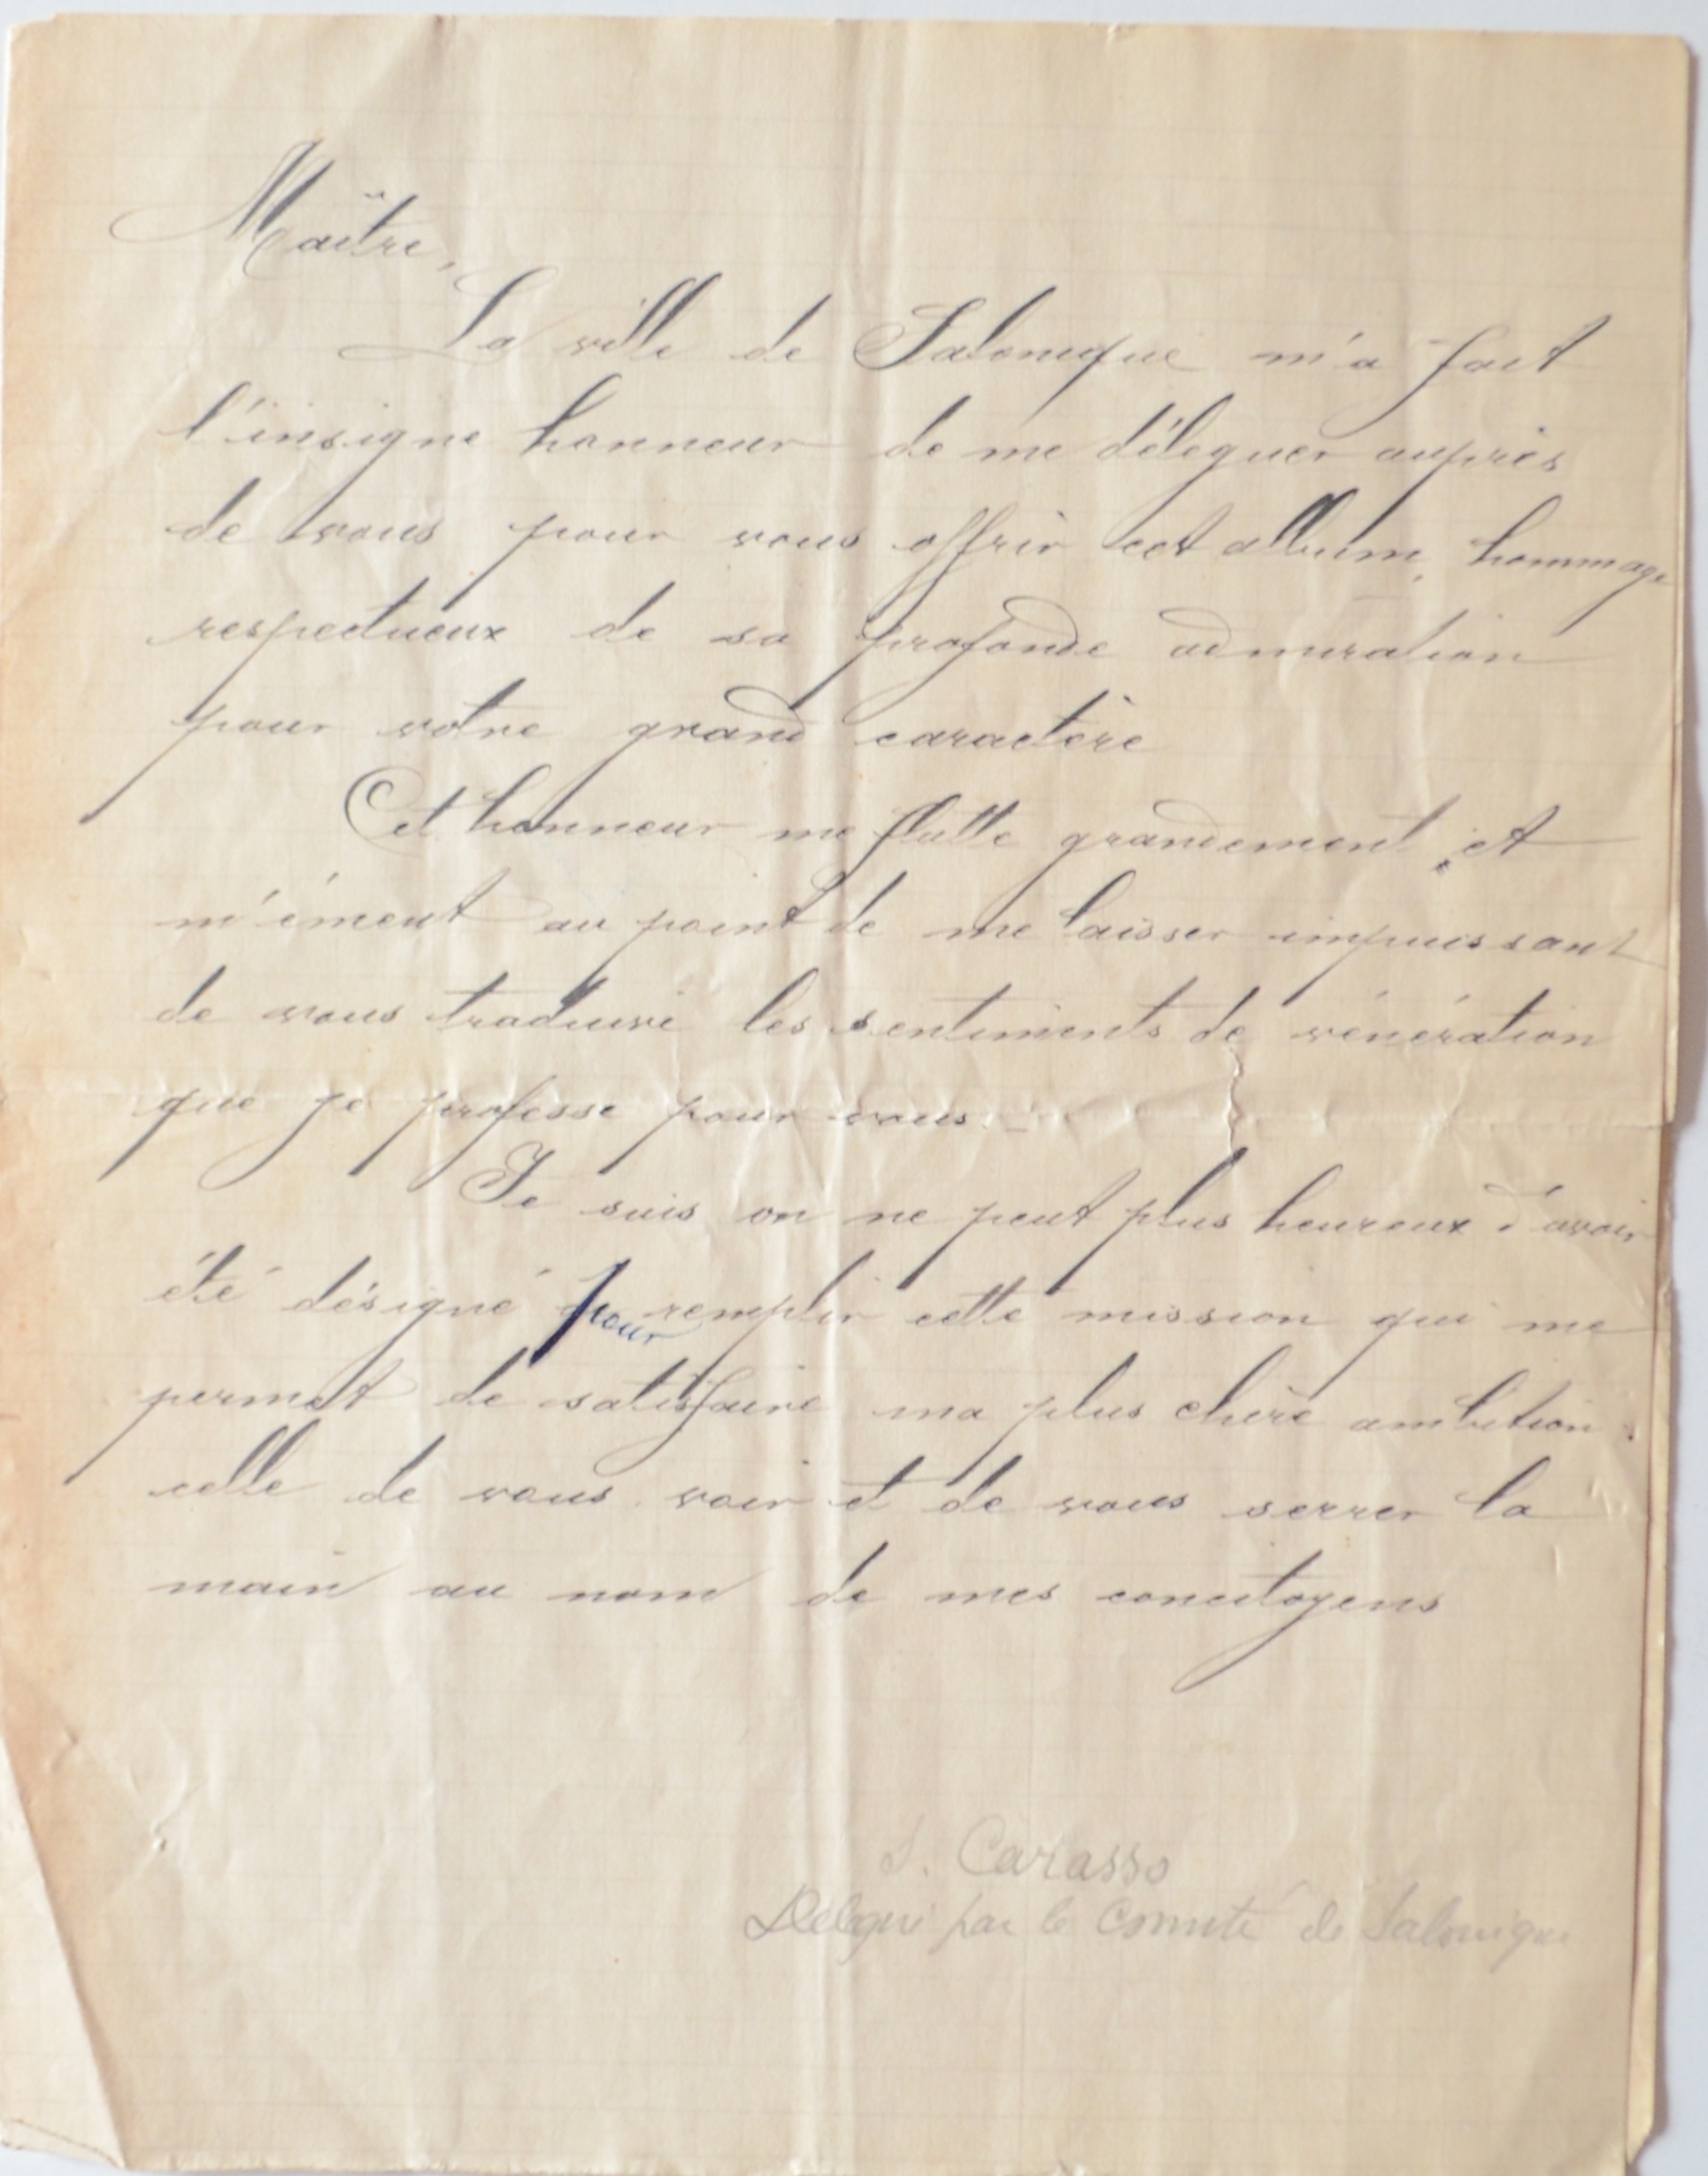 Maître,
La ville de Salonique m'a fait
l'insigne honneur de me déléguer auprès
de vous pour vous offrir cet album, hommage
respectueux de sa profonde admiration
pour votre grand caractère
Cet honneur me flatte grandement, et
m'émeut au point de me laisser impuissant
de vous traduire les sentiments de vénération
que je professe pour vous.
Je suis on ne peut plus heureux d'avoir
été désigné pour remplir cette mission qui me
permet de satisfaire ma plus chère ambition :
celle de vous voir et de vous serrer la
main au nom de mes concitoyens
Carasso
Délégué par le Comité de Salonique